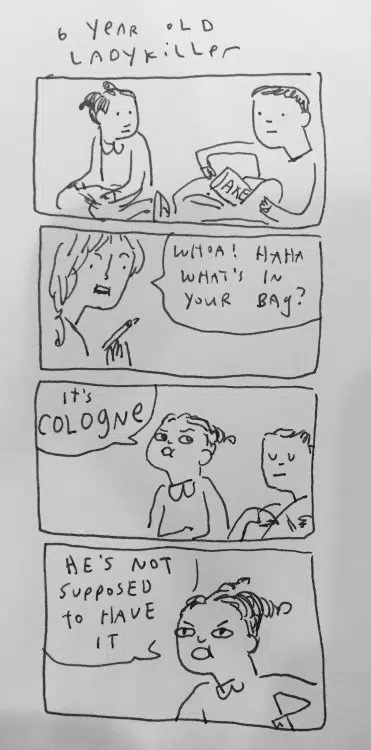 6 YEAR OLD
LADYKILLER
JAKE
WHOA! HAHA
WHAT'S IN
YOUR BAG?
It's
COLOGNE
HE'S NOT
SUPPOSED
to HAVE
IT